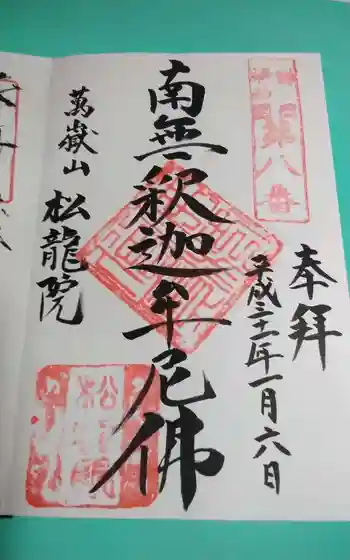 奉拜
平成三十一年一月六日
南無釋迦牟尼佛
萬嶽山 松龍院
第八番